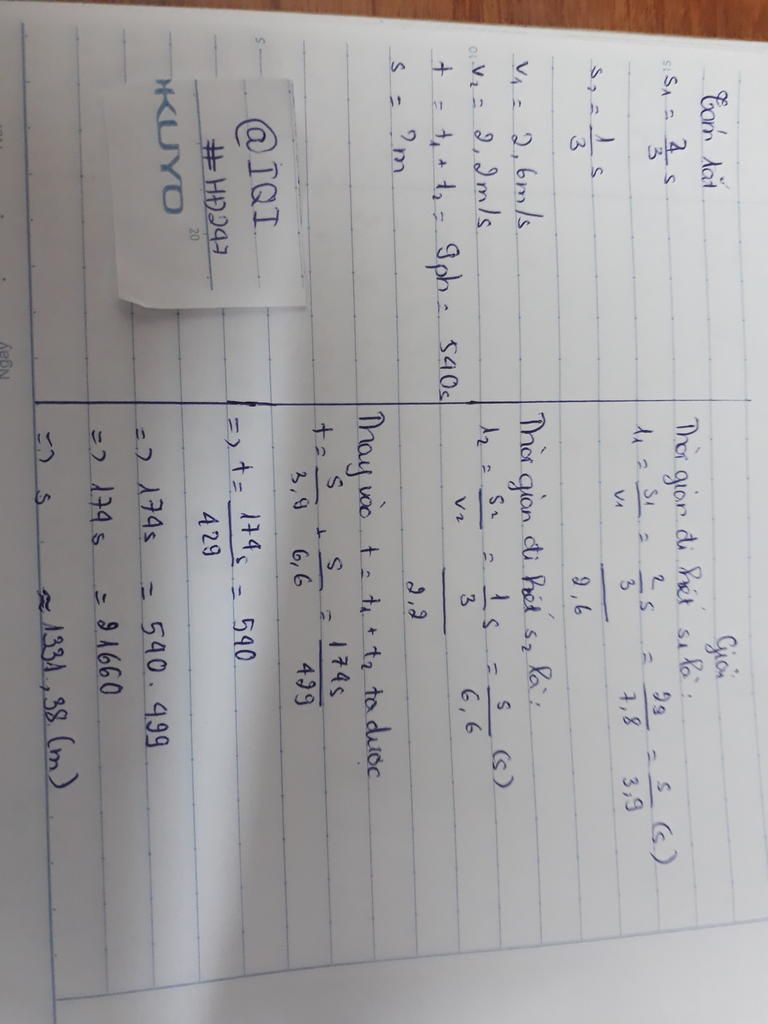 Tóm tắt
s₁ = 2/3 s
s₂ = 1/3 s
v₁ = 2,6m/s
v₂ = 2,2m/s
t = t₁ + t₂ = 9ph = 540s
s = ?m
@IQI
#HD247
KUYO
20
Giải
Thời gian đi hết s₁ là:
t₁ = s₁/v₁ = 2/3 s / 2,6 = 2s/7,8 = s/3,9 (s)
Thời gian đi hết s₂ là:
t₂ = s₂/v₂ = 1/3 s / 2,2 = s/6,6 (s)
Thay vào t = t₁ + t₂ ta được
t = s/3,9 + s/6,6 = 174s/429
=> t = 174s/429 = 540
=> 174s = 540.429
=> 174s = 231660
=> s ≈ 1331,38 (m)
Ngày